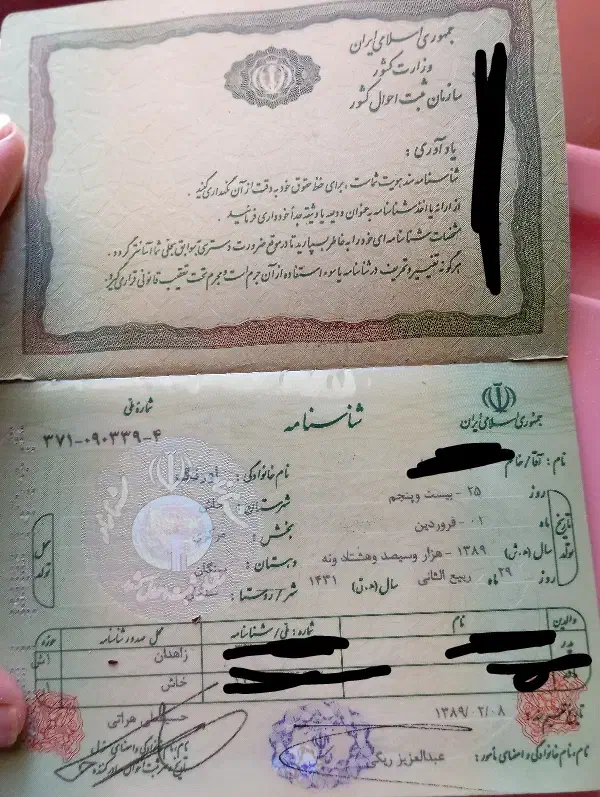 جمهوری اسلامی ایران
وزارت کشور
سازمان ثبت احوال کشور
یادآوری :
شناسنامه سند هویت شماست ، برای حفظ حقوق خود به دقت از آن نگهداری کنید .
از ارائه یا اخذ شناسنامه به عنوان ودیعه یا وثیقه جداً خودداری فرمائید .
مشخصات شناسنامه ای خود را به خاطر بسپارید تا در موقع ضرورت دسترسی به سوابق سجلی شما آسانتر گردد .
هرگونه تغییر و تحریف در شناسنامه یا سوء استفاده از آن جرم است و مجرم تحت تعقیب قانونی قرار می گیرد
جمهوری اسلامی ایران
شناسنامه
شماره ملی
۳۷۱-۰۹۰۳۳۹-۴
نام : آقا/خانم
نام خانوادگی :
تاریخ تولد
روز ۲۵ - بیست وپنجم
ماه ۰۱ - فروردین
سال (ه.ش) ۱۳۸۹ - هزار وسیصد وهشتاد ونه
روز ۲۹ ماه ربیع الثانی سال (ه.ق) ۱۴۳۱
محل تولد
شهرستان : خاش
بخش : مرکزی
دهستان : سنگان
شهر/روستا :
والدین نام شماره : ملی/شناسنامه محل صدور شناسنامه حوزه
پدر زاهدان
مادر خاش
تاریخ تنظیم سند : ۱۳۸۹/۰۲/۰۸
حسینعلی هراتی
نام،نام خانوادگی و امضای مأمور : عبدالعزیز ریگی